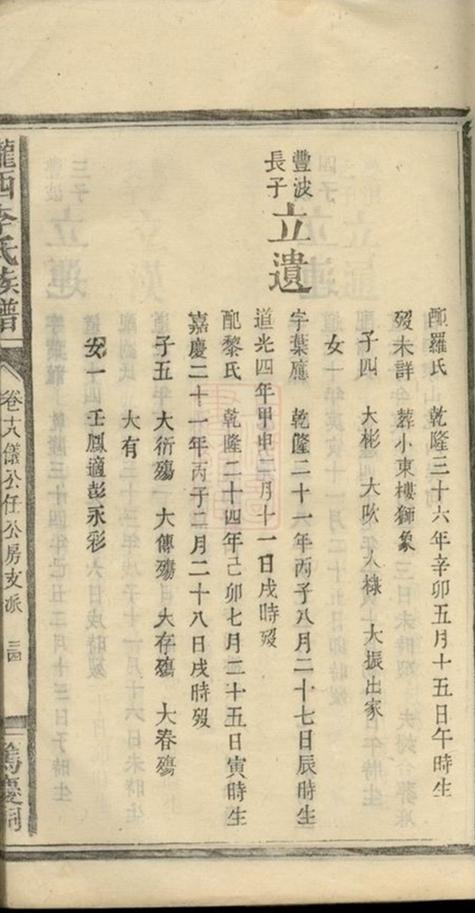 配羅氏 乾隆三十六年辛卯五月十五日午時生
歿未詳 葬小東樓獅象
子四 大彬 大畋 大棣 大振出家
女一
豐波
長子
立遺
字葉應 乾隆二十一年丙子八月二十七日辰時生
道光四年甲申二月十一日戌時歿
配黎氏 乾隆二十四年己卯七月二十五日寅時生
嘉慶二十一年丙子二月二十八日戌時歿
子五 大衍殤 大傳殤 大存殤 大春殤
大有
女一 壬鳳適彭永彩
隴西李氏族譜
卷十八儀公任公房支派
三四
篤慶祠